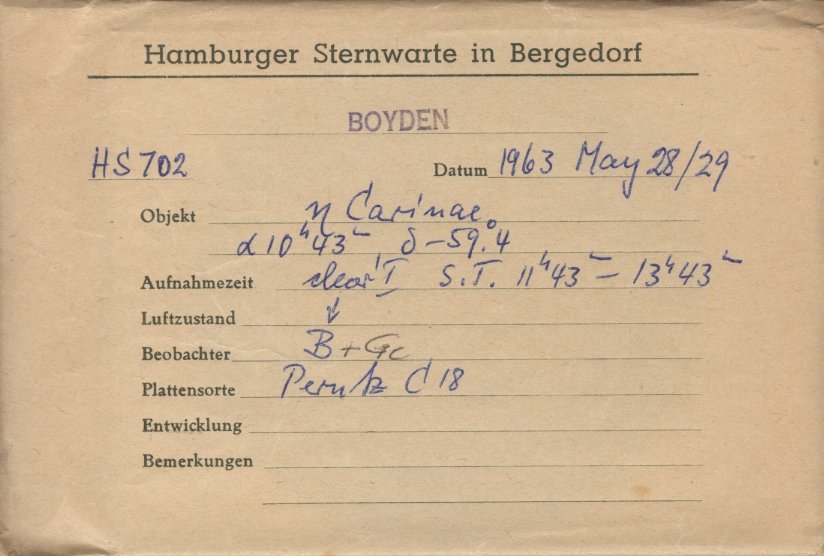 Hamburger Sternwarte in Bergedorf
BOYDEN
HS 702 Datum 1963 May 28/29
Objekt η Carinae
α 10ʰ43ᵐ, δ -59°.4
Aufnahmezeit clear I S.T. 11ʰ43ᵐ - 13ʰ43ᵐ
Luftzustand ↓
Beobachter B + Gc
Plattensorte Perutz C 18
Entwicklung
Bemerkungen